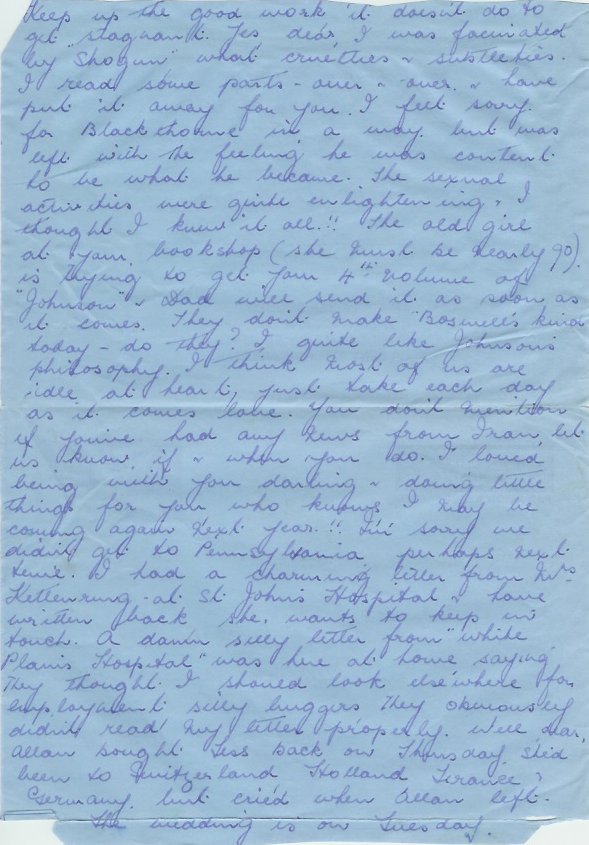 Keep up the good work it doesn't do to
get stagnant. Yes dear I was facinated
by "Shogun" what cruelties & subtleties.
I read some parts - over & over & have
put it away for you. I feel sorry
for Blackthorne in a way but was
left with the feeling he was content
to be what he became. The sexual
activities were quite enlightening, I
thought I knew it all!! The old girl
at your bookshop (she must be nearly 90)
is trying to get your 4th volume of
"Johnson" & Dad will send it as soon as
it comes. They don't make Boswell's kind
today - do they? I quite like Johnson's
philosophy. I think most of us are
idle at heart, just take each day
as it comes love. You don't mention
if you've had any news from Iran, let
us know if & when you do. I loved
being with you darling & doing little
things for you who knows I may be
coming again next year!! I'm sorry we
didn't get to Pennsylvania perhaps next
time. I had a charming letter from Mrs
Kettenring - at St Johns Hospital & have
written back she wants to keep in
touch. A damn silly letter from "White
Plains Hospital" was here at home saying
They thought I should look elsewhere for
employment silly buggers they obviously
didn't read my letter properly. Well dear,
Allan bought Tess back on Thursday she'd
been to Switzerland Holland France &
Germany, but cried when Allan left.
The wedding is on Tuesday.